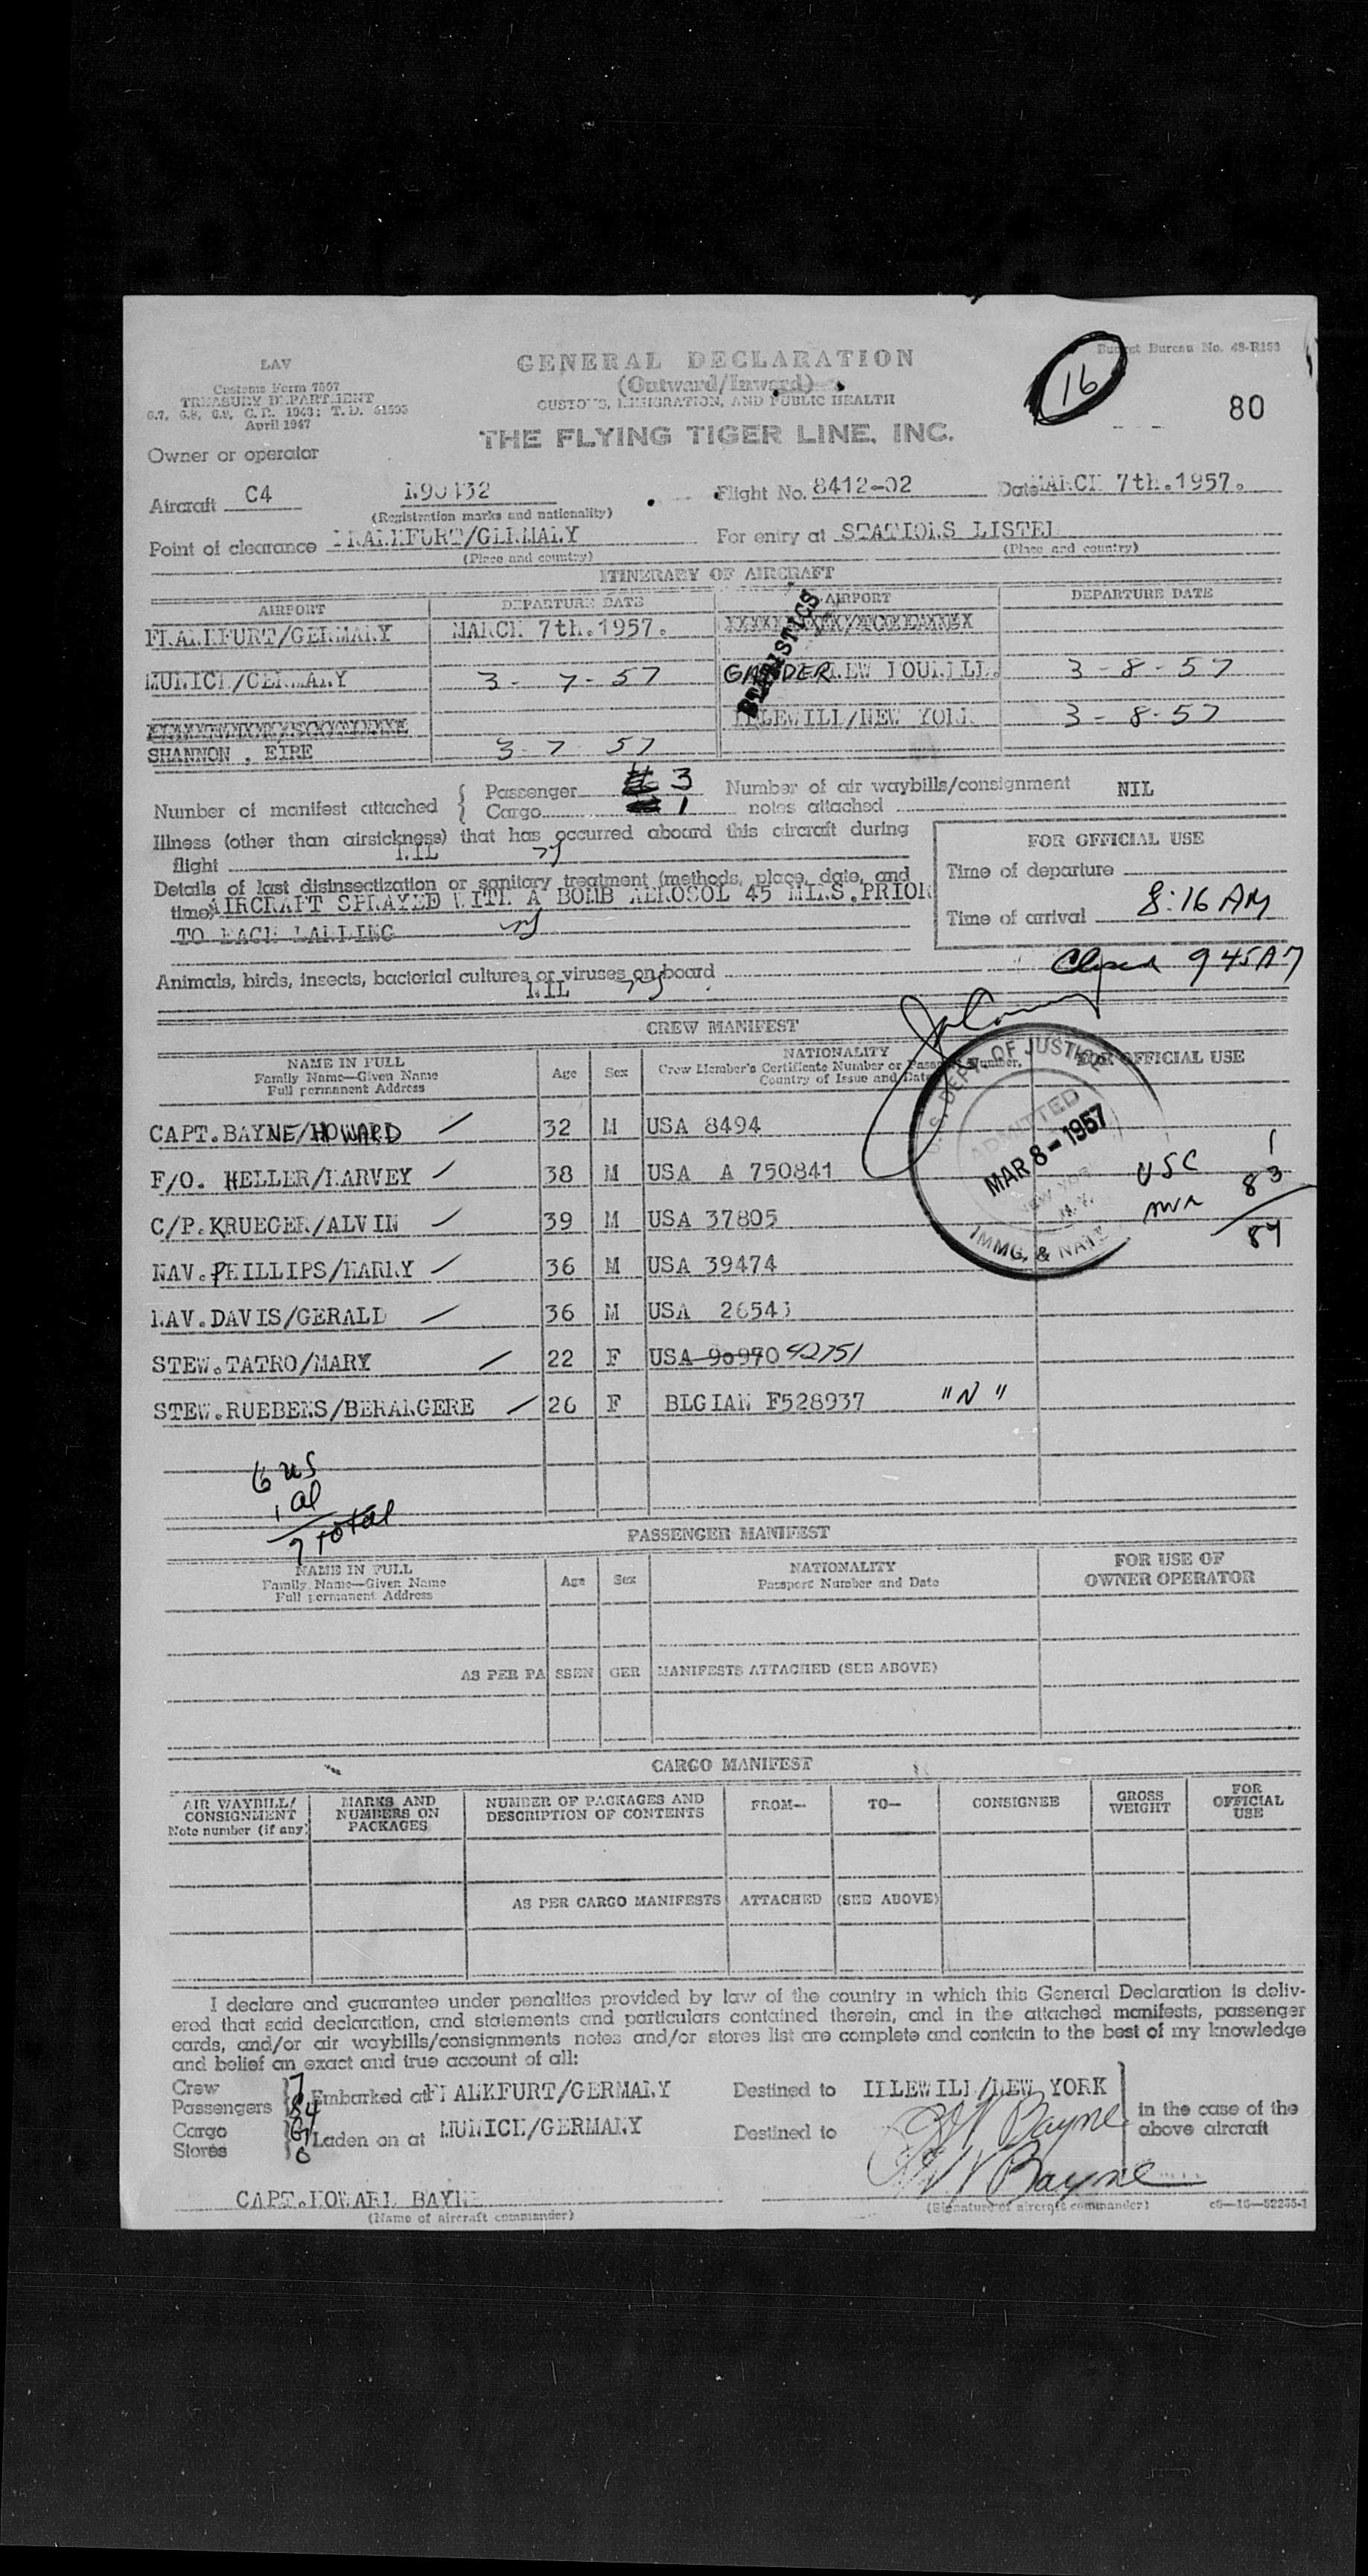 LAV
Customs Form 7507
TREASURY DEPARTMENT
6.7, 6.8, 6.9, C.R. 1943; T.D. 51595
April 1947
GENERAL DECLARATION
(Outward/Inward)
CUSTOMS, IMMIGRATION, AND PUBLIC HEALTH
THE FLYING TIGER LINE, INC.
Budget Bureau No. 48-R153
16
80
Owner or operator
Aircraft C4 Flight No. 8412-02 Date MARCH 7th.1957.
(Registration marks and nationality)
Point of clearance FRANKFURT/GERMANY For entry at STATIONS LISTED
(Place and country) (Place and country)
ITINERARY OF AIRCRAFT
AIRPORT DEPARTURE DATE AIRPORT DEPARTURE DATE
STATISTICS
FRANKFURT/GERMANY MARCH 7th.1957.
MUNICH/GERMANY 3-7-57 GANDER NEW FOUNDL. 3-8-57
IDLEWILD/NEW YORK 3-8-57
SHANNON, EIRE 3-7 57
Number of manifest attached { Passenger 3 Number of air waybills/consignment NIL
Cargo 1 notes attached
Illness (other than airsickness) that has occurred aboard this aircraft during
flight NIL
Details of last disinsectization or sanitary treatment (methods, place, date, and
time) AIRCRAFT SPRAYED WITH A BOMB AEROSOL 45 MINS.PRIOR
TO EACH LANDING
FOR OFFICIAL USE
Time of departure
Time of arrival 8:16 AM
Closed 9 45AM
Animals, birds, insects, bacterial cultures or viruses on board
NIL
CREW MANIFEST
NAME IN FULL
Family Name—Given Name
Full permanent Address
Age Sex
NATIONALITY
Crew Member's Certificate Number or Passport Number,
Country of Issue and Date
FOR OFFICIAL USE
U.S. DEPT. OF JUSTICE
ADMITTED
MAR 8-1957
NEW YORK
N.Y.
IMMG. & NATZ
USC 1
83
84
CAPT.BAYNE/HOWARD 32 M USA 8494
F/O. HELLER/HARVEY 38 M USA A 750841
C/P.KRUEGER/ALVIN 39 M USA 37805
NAV.PHILLIPS/HARRY 36 M USA 39474
NAV.DAVIS/GERALD 36 M USA 26543
STEW.TATRO/MARY 22 F USA 90970 42751
STEW.RUEBENS/BERANGERE 26 F BLGIAN F528937 "N"
6 US
1 al
7 total
PASSENGER MANIFEST
NAME IN FULL
Family Name—Given Name
Full permanent Address
Age Sex
NATIONALITY
Passport Number and Date
FOR USE OF
OWNER OPERATOR
AS PER PASSENGER MANIFESTS ATTACHED (SEE ABOVE)
CARGO MANIFEST
AIR WAYBILL/
CONSIGNMENT
Note number (if any)
MARKS AND
NUMBERS ON
PACKAGES
NUMBER OF PACKAGES AND
DESCRIPTION OF CONTENTS
FROM— TO— CONSIGNEE
GROSS
WEIGHT
FOR
OFFICIAL
USE
AS PER CARGO MANIFESTS ATTACHED (SEE ABOVE)
I declare and guarantee under penalties provided by law of the country in which this General Declaration is deliv-
ered that said declaration, and statements and particulars contained therein, and in the attached manifests, passenger
cards, and/or air waybills/consignments notes and/or stores list are complete and contain to the best of my knowledge
and belief an exact and true account of all:
Crew 7
Passengers 84 Embarked at FRANKFURT/GERMANY Destined to IDLEWILD/NEW YORK
Cargo
Stores 0 Laden on at MUNICH/GERMANY Destined to
in the case of the
above aircraft
Bayne
Bayne
CAPT.HOWARD BAYNE
(Name of aircraft commander) (Signature of aircraft commander) c6—16—52235-1